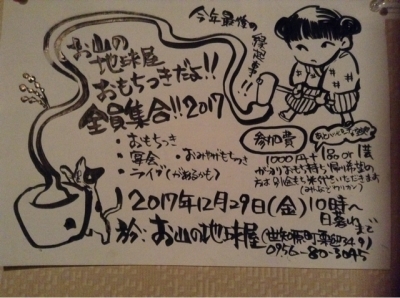 今年最後の
縁起事!!
お山の
地球屋
おもちつきだよ!!
全員集合!!2017
・おもちつき
・宴会 ・おみやげもちつき
・ライブ(があるかも)
参加費
1000円+1品or1芸
2017年12月29日(金)10時〜
日暮れまで
於:お山の地球屋
0956-80-3045